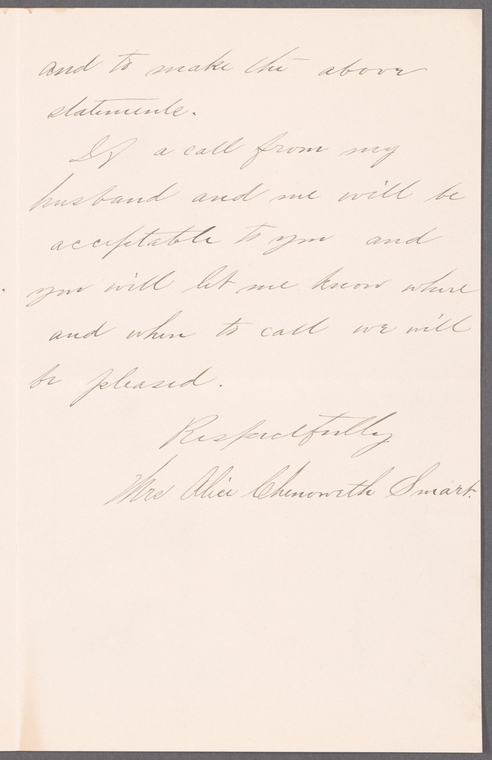 and to make the above
statements.
If a call from my
husband and me will be
acceptable to you and
you will let me know where
and when to call we will
be pleased.
Respectfully
Mrs Alice Chenowith Smart.